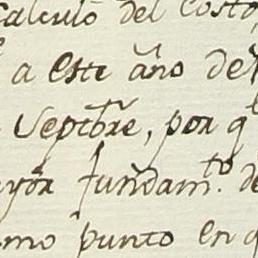 calculo del Costo
a este año de
Septbre, por q
yor fundam.to de
mo punto en q